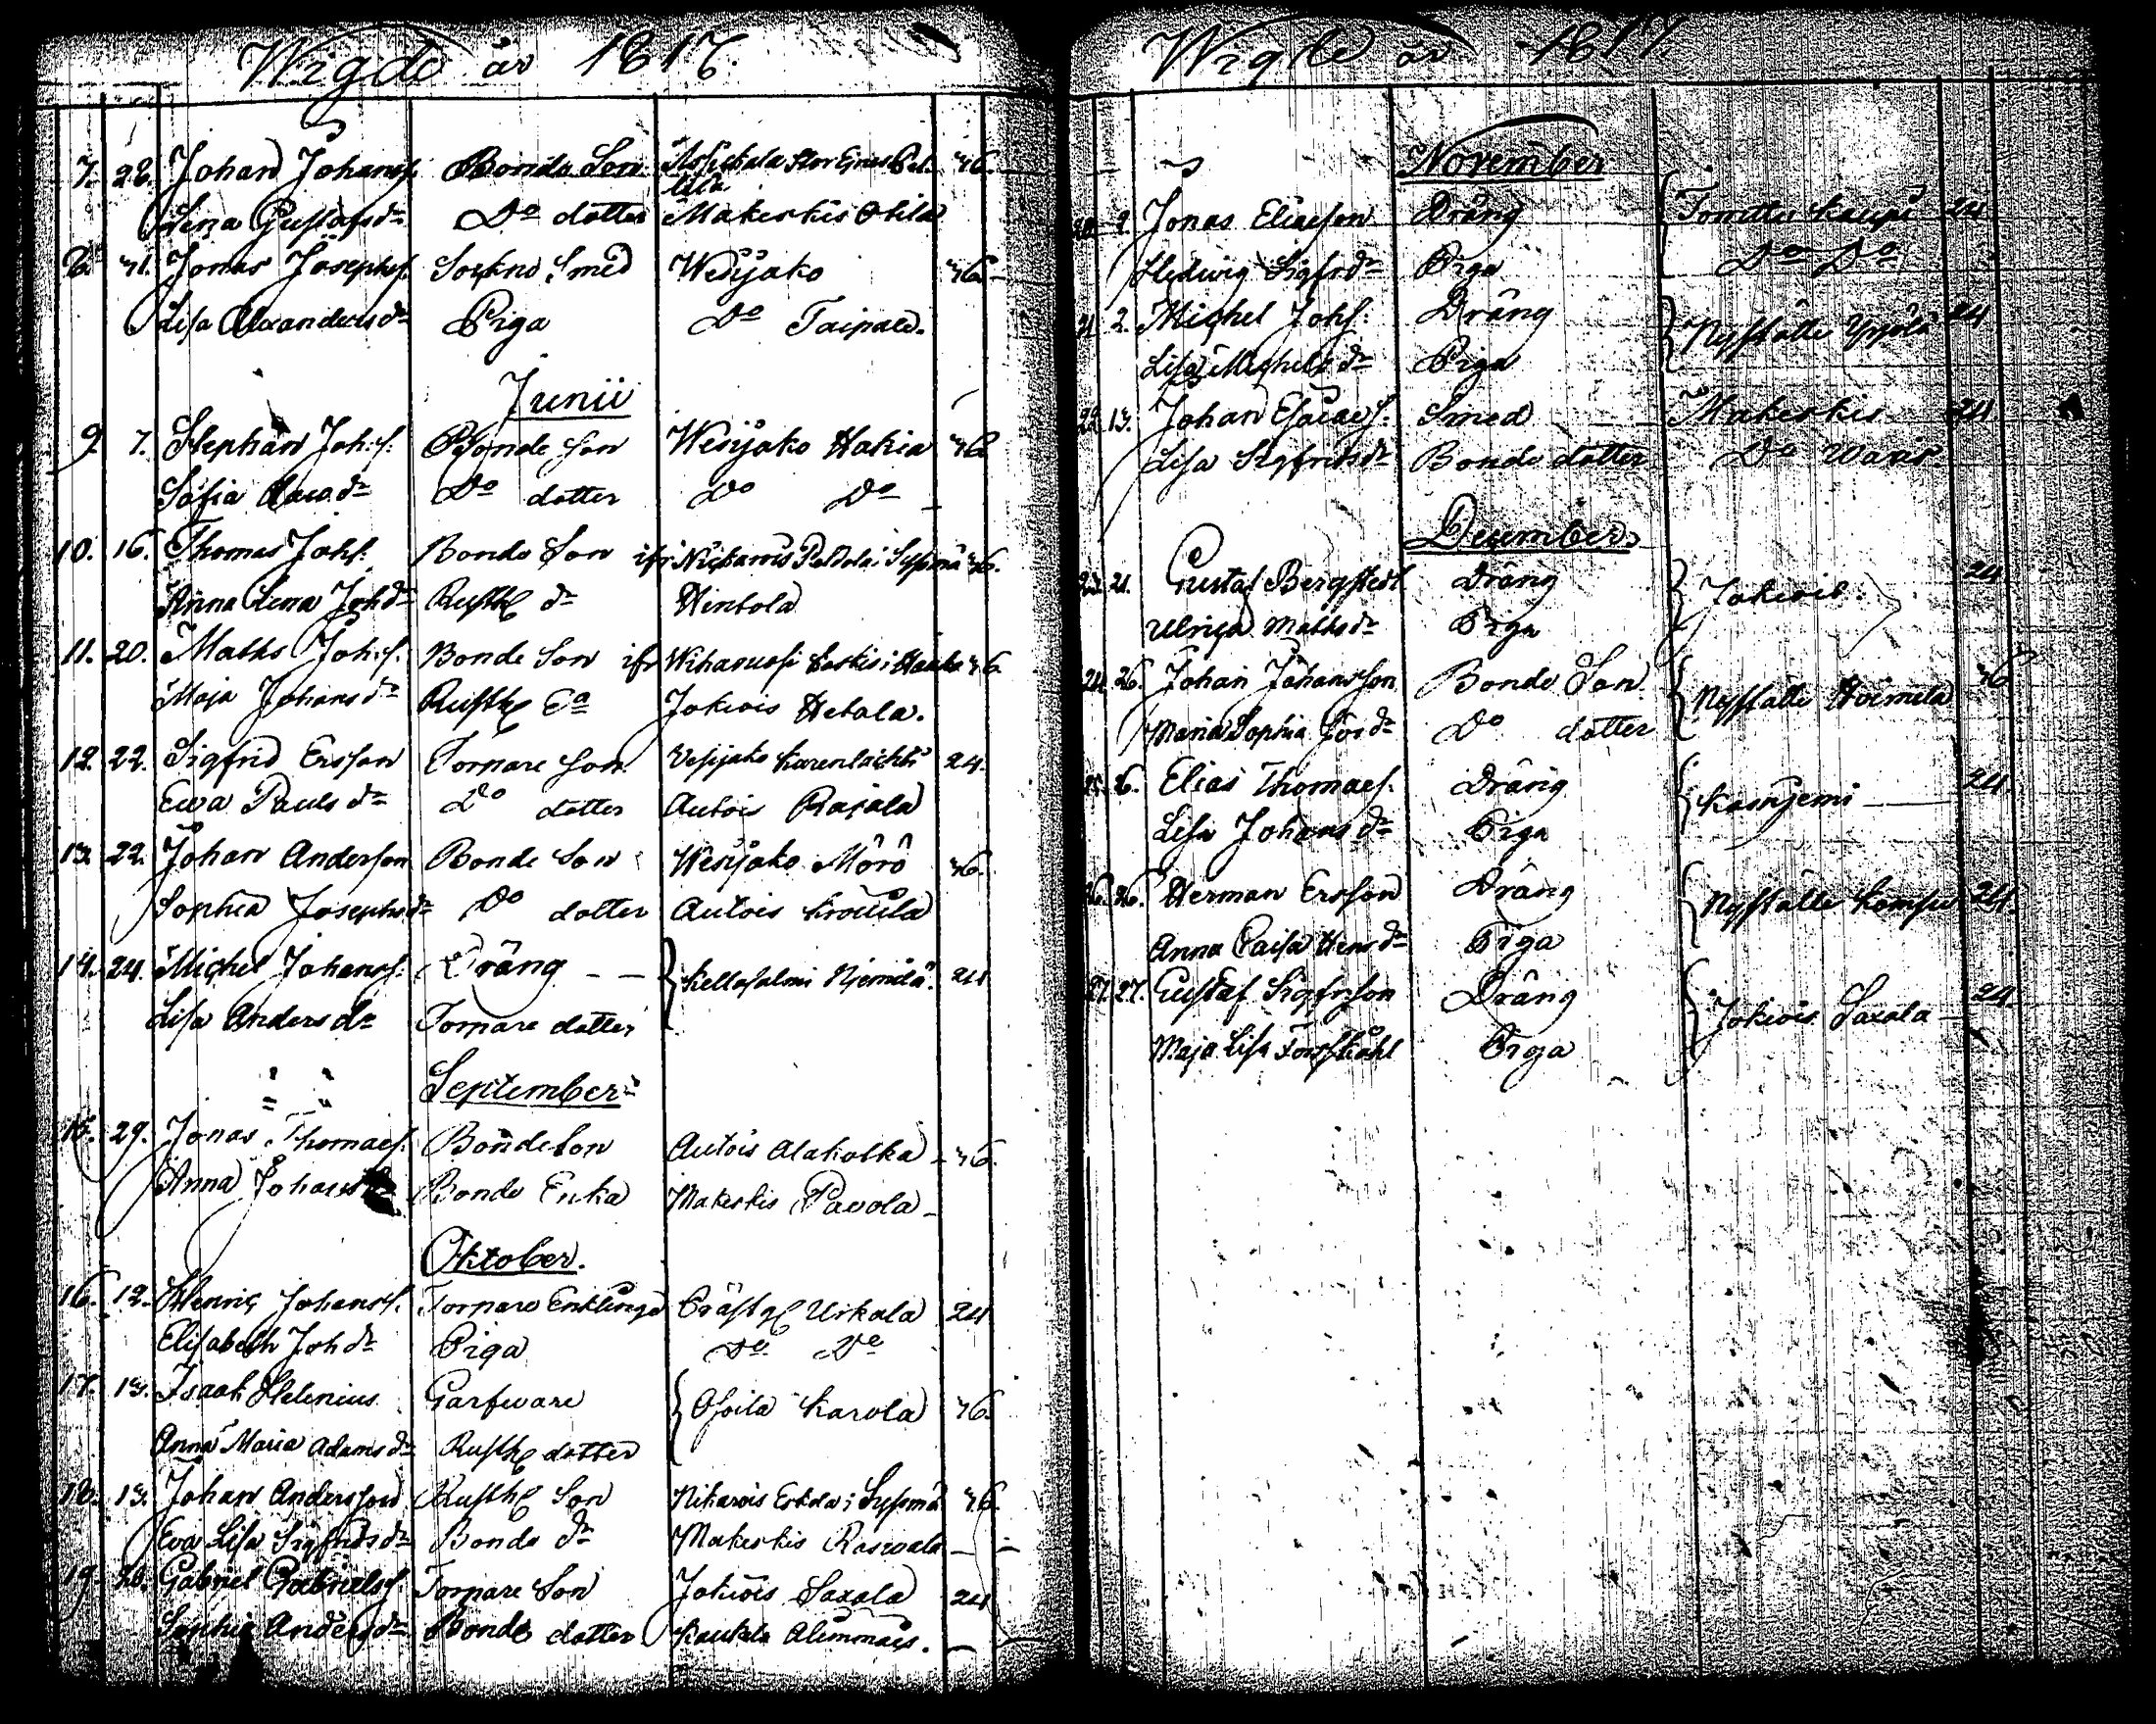 Wigde år 1817.
7. 28. Johan Johansſ. Bonde Son 36.
Lena Gustafsdr Do dotter Makeskis Otila
8. 31. Jonas Josephsſ. Sockne Smed Wesijako 36.
Lisa Alexandersdr Piga Do Taipale.
Junii
9. 7. Stephan Joh:ſ. Bonde Son Wesijako Hakia 36
Sofia dr Do dotter Do Do
10. 16. Thomas Johſ. Bonde Son ifr Sysmä 36.
Anna Lena Johdr Rusth dr Hintola
11. 20. Maths Joh:ſ. Bonde Son ifr 36
Maja Johansdr Rusth Jokiois Hetala.
12. 22. Sigfrid Ersson Torpare Son Vesijako Karenlachti 24.
Ewa Paulsdr Do dotter Autois Rajala
13. 22. Johan Anderson Bonde Son Wesijako Mörö 36.
Sophia Josephsdr Do dotter Autois Krouila
14. 24. Michel Johansſ. Dräng Kellosalmi Njemilä. 24
Lisa Andersdr Torpare dotter
September
15. 29. Jonas Thomaeſ. Bonde Son Autois Alakolka 36.
Anna Johansdr Bonde Enka Makeskis Pavola
Oktober.
16. 12. Henric Johansſ. Torpare Enklinge Prästg Urkala 24
Elisabeth Johdr Piga Do Do
17. 13. Isaak Helenius Garfware Osoila Karola 36.
Anna Maria Adamsdr Rusth dotter
18. 13. Johan Andersson Rusth Son Nikarois Eskola i Sysmä 36
Eva Lisa Sigfridsdr Bonde dr Makeskis Raswala
19. 20. Gabriel Gabrielsſ. Torpare Son Jokiois Saxala 24
Sophia Andersdr Bonde dotter Kaukela Alimmais.
Wigde år 1817.
November
20. 2. Jonas Eliaeson Dräng Torrittu Kaupi 24
Hedwig Sigfrdr Piga Do Do
21. 2. Michel Johſ. Dräng Nystälte Yppölä 24
Lisa Michelsdr Piga
22. 13. Johan Esaiaeſ. Smed Makeskis 24
Lisa Sigfridsdr Bonde dotter Do Waris
December
23. 21. Gustaf Bergstedt Dräng Jokiois 24
Ulrica Mathsdr Piga
24. 26. Johan Johansson Bonde Son Nystälte Hoimela 36
Maria Sophia Jörsdr Do dotter
25. 26. Elias Thomaeſ. Dräng Kasnjemi 24.
Lisa Johansdr Piga
26. 26. Herman Ersson Dräng Nystälte Kämpi 24.
Anna Caisa Hensdr Piga
27. 27. Gustaf Sigfrson Dräng Jokiois Saxala 24
Maja Lisa Forsståhl Piga